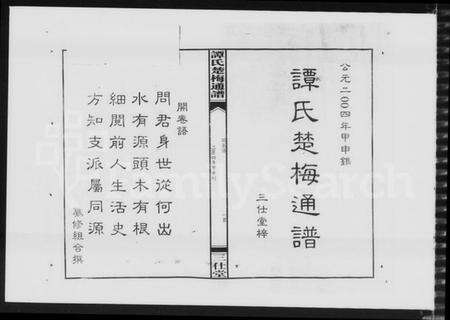 公元二〇〇四年甲申鐫
譚氏楚梅通譜
三仕堂梓
譚氏楚梅通譜
三仕堂
開卷語
問君身世從何出
水有源頭木有根
細閱前人生活史
方知支派屬同源
纂修組合撰
FamilySearch